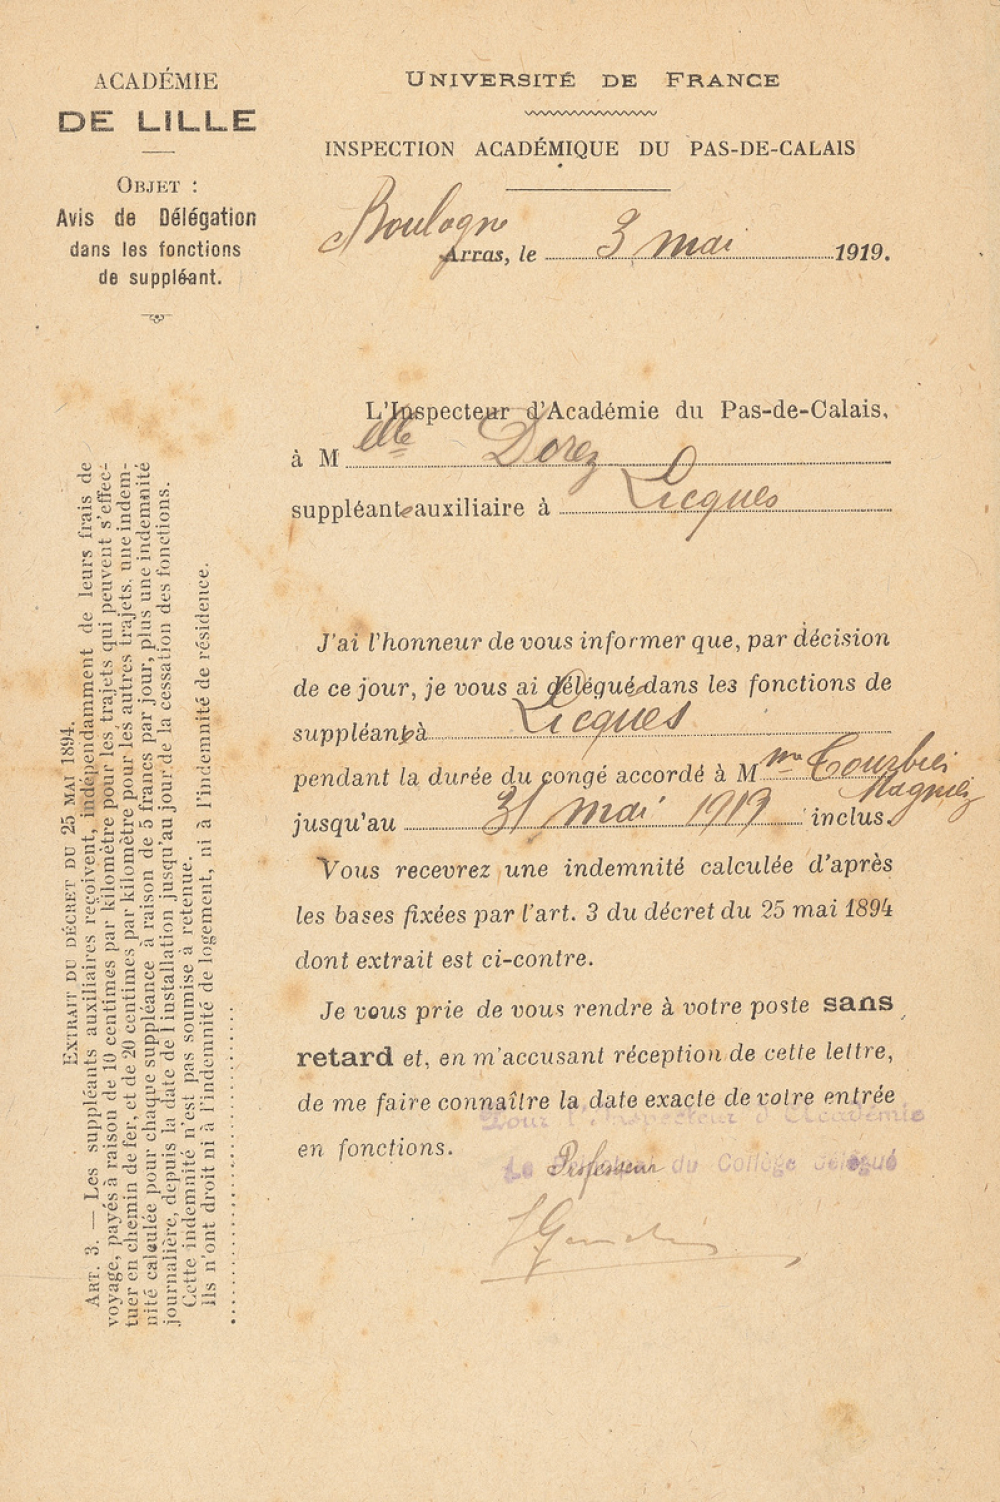 ACADÉMIE
DE LILLE
OBJET :
Avis de Délégation
dans les fonctions
de suppléant.
UNIVERSITÉ DE FRANCE
INSPECTION ACADÉMIQUE DU PAS-DE-CALAIS
Boulogne
Arras, le 3 mai 1919.
L'Inspecteur d'Académie du Pas-de-Calais,
à M elle Dorez
suppléante auxiliaire à Licques
J'ai l'honneur de vous informer que, par décision
de ce jour, je vous ai délégué dans les fonctions de
suppléant à Licques
pendant la durée du congé accordé à M me Courbois
Magniez
jusqu'au 31 mai 1919 inclus.
Vous recevrez une indemnité calculée d'après
les bases fixées par l'art. 3 du décret du 25 mai 1894
dont extrait est ci-contre.
Je vous prie de vous rendre à votre poste sans
retard et, en m'accusant réception de cette lettre,
de me faire connaître la date exacte de votre entrée
en fonctions.
Pour l'Inspecteur d'Académie
Le Professeur du Collège délégué
EXTRAIT DU DÉCRET DU 25 MAI 1894.
ART. 3. — Les suppléants auxiliaires reçoivent, indépendamment de leurs frais de
voyage, payés à raison de 10 centimes par kilomètre pour les trajets qui peuvent s'effec-
tuer en chemin de fer, et de 20 centimes par kilomètre pour les autres trajets, une indem-
nité calculée pour chaque suppléance à raison de 5 francs par jour, plus une indemnité
journalière, depuis la date de l'installation jusqu'au jour de la cessation des fonctions.
Cette indemnité n'est pas soumise à retenue.
Ils n'ont droit ni à l'indemnité de logement, ni à l'indemnité de résidence.